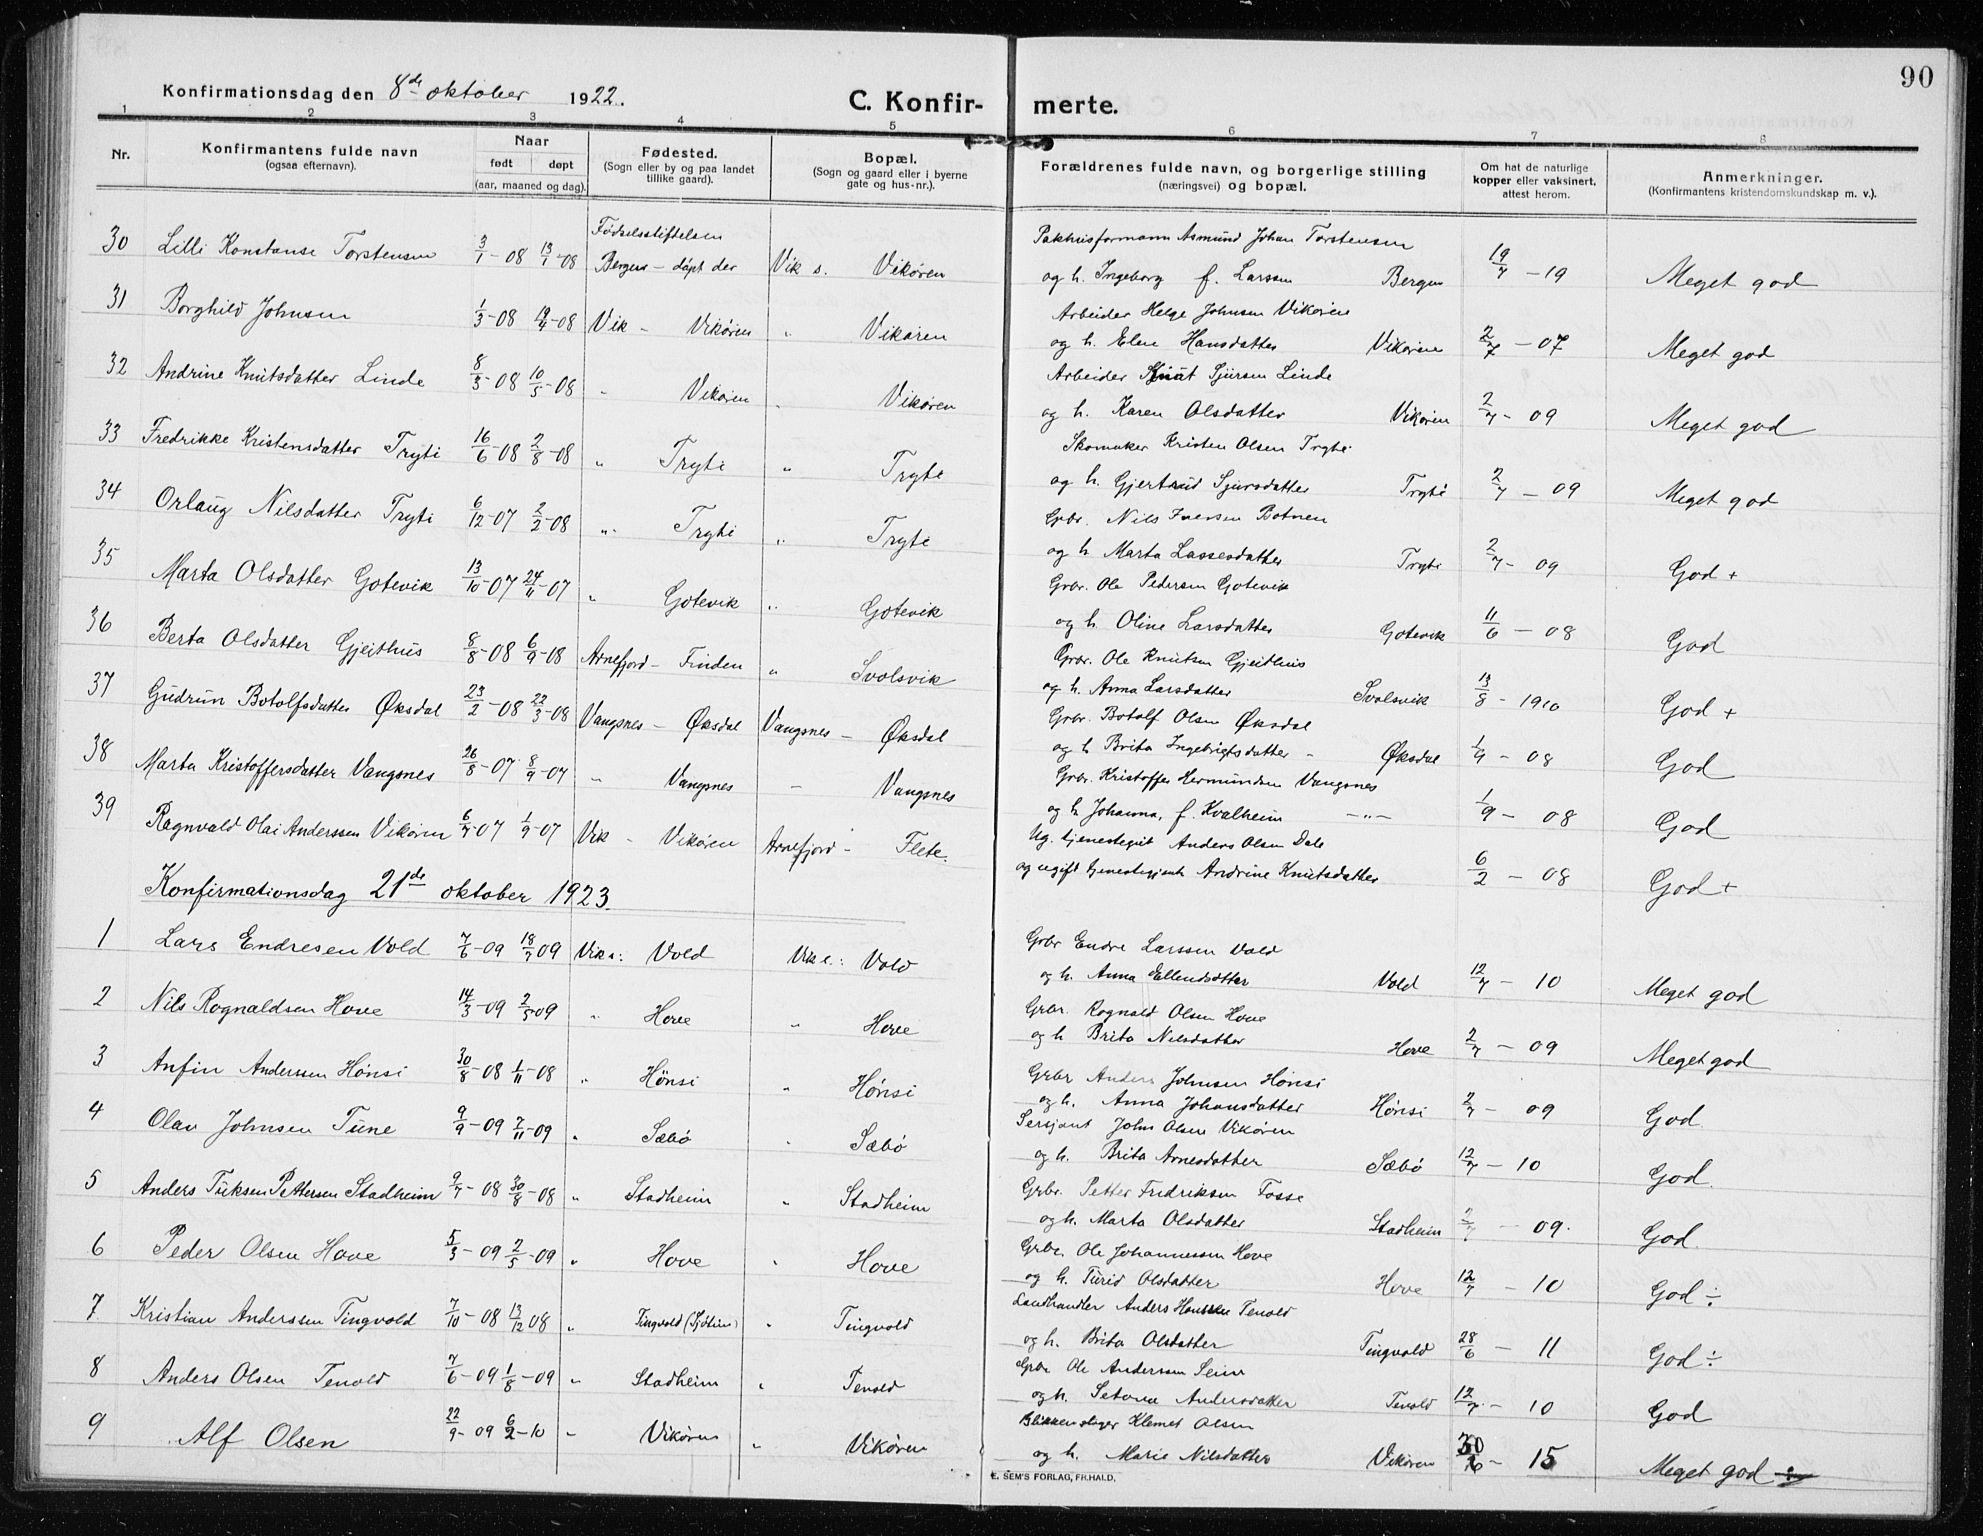 90
Konfirmationsdag den 8de oktober 1922.
C. Konfirmerte.
1 2 3 4 5 6 7 8
Nr.
Konfirmantens fulde navn
(ogsaa efternavn).
Naar
født døpt
(aar, maaned og dag).
Fødested.
(Sogn eller by og paa landet
tillike gaard).
Bopæl.
(Sogn og gaard eller i byerne
gate og hus-nr.).
Forældrenes fulde navn, og borgerlige stilling
(næringsvei) og bopæl.
Om hat de naturlige
kopper eller vaksinert,
attest herom.
Anmerkninger.
(Konfirmantens kristendomskundskap m. v.).
Fødselsstiftelsen Pakhusformann Asmund Johan Torstensen
30 Lilli Konstanse Torstensen 3/1-08 13/1-08 Bergen - døpt der Vik s. Vikøren og h. Ingeborg f. Larssen Bergen 19/7 - 19 Meget god
Arbeider Helge Johnsen Vikøren
31 Borghild Johnsen 1/3-08 19/4-08 Vik - Vikøren " Vikøren og h. Elen Hansdatter Vikøren 2/7 - 07 Meget god
Arbeider Knut Sjursen Linde
32 Andrine Knutsdatter Linde 8/3-08 10/5-08 " Vikøren " Vikøren og h. Karen Olsdatter Vikøren 2/7 - 09 Meget god
Skomaker Kristen Olsen Tryti
33 Fredrikke Kristensdatter Tryti 16/6-08 2/8-08 " Tryti " Tryti og h. Gjertrud Sjursdatter Tryti 2/7 - 09 Meget god
Grbr. Nils Iversen Botnen
34 Orlaug Nilsdatter Tryti 6/12-07 2/2-08 " Tryti " Tryti og h Marta Lassesdatter Tryti 2/7 - 09 God +
Grbr. Ole Pedersen Gotevik
35 Marta Olsdatter Gotevik 13/10-07 24/11-07 " Gotevik " Gotevik og h. Oline Larsdatter Gotevik 11/6 - 08 God
Grbr. Ole Knutsen Gjeithus
36 Berta Olsdatter Gjeithus 8/8-08 6/9-08 Arnefjord - Finden " Svolsvik og h. Anna Larsdatter Svolsvik 13/8 - 1910 God +
Grbr. Botolf Olsen Øksdal
37 Gudrun Botolfsdatter Øksdal 23/2-08 22/3-08 Vangsnes - Øksdal Vangsnes - Øksdal og h Brita Ingebrigtsdatter - Øksdal 1/9 - 08 God
Grbr. Kristoffer Hermundsen Vangsnes
38 Marta Kristoffersdatter Vangsnes 26/8-07 8/9-07 " Vangsnes - Vangsnes og h Johanna, f. Kvalheim -"- 1/9 - 08 God
Ug. tjenestegut Anders Olsen Dale
39 Ragnvald Olai Anderssen Vikøren 6/7-07 1/9-07 Vik - Vikøren Arnefjord - Flete. og ugift tjenestepike Andrine Knutsdatter 6/2 - 08 God +
Konfirmationsdag 21de oktober 1923.
Grbr Endre Larssen Vold
1 Lars Endresen Vold 7/6-09 18/7 09 Vik s: Vold Vik s: Vold og h. Anna Ellendsdatter Vold 12/7 - 10 Meget god
Grbr. Rognald Olsen Hove
2 Nils Rognaldsen Hove 14/3-09 2/5-09 " Hove " Hove og h Brita Nilsdatter Hove 2/7 - 09 Meget god
Grbr Anders Johnsen Hønsi
3 Anfin Anderssen Hønsi 30/8-08 1/11-08 " Hønsi " Hønsi og h. Anna Johansdatter Hønsi 2/7 - 09 God
Sersjant John Olsen Vikøren
4 Olav Johnsen Tune 9/9-09 7/11-09 " Sæbø " Sæbø og h. Brita Arnesdatter Sæbø 12/7 - 10 God
Grbr. Petter Fredriksen Fosse
5 Anders Tuksen Pettersen Stadheim 9/7-08 30/8-08 " Stadheim " Stadheim og h. Marta Olsdatter Stadheim 2/7 - 09. God.
Grbr. Ole Johannessen Hove
6 Peder Olsen Hove 5/3-09 2/5-09 " Hove " Hove og h. Turid Olsdatter Hove 12/7 - 10 God ÷
Landhandler Anders Hanssen Tenold
7 Kristian Anderssen Tingvold 7/10-08 13/12 08 " Tingvold " Tingvold og h. Brita Olsdatter Tingvold 28/6 - 11 God ÷
Grbr Ole Anderssen Seim
8 Anders Olsen Tenold 7/6-09 1/8-09 " Stadheim " Tenold og h. Andersdatter Tenold 12/7 - 10 God
Blikkenslager Klemet Olsen
9 Alf Olsen 22/9-09 6/2-10 " Vikøren " Vikøren og h. Marie Nilsdatter Vikøren 30/6 - 15 Meget god
E. SEM'S FORLAG, FR.HALD.